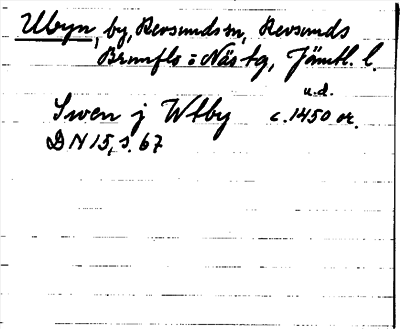 Utbyn, by, Revsunds sn, Revsunds
Brunflo o Näs tg, Jämtl. l.
u.d.
Swen j Wtby c. 1450 or.
DN 15, s. 67